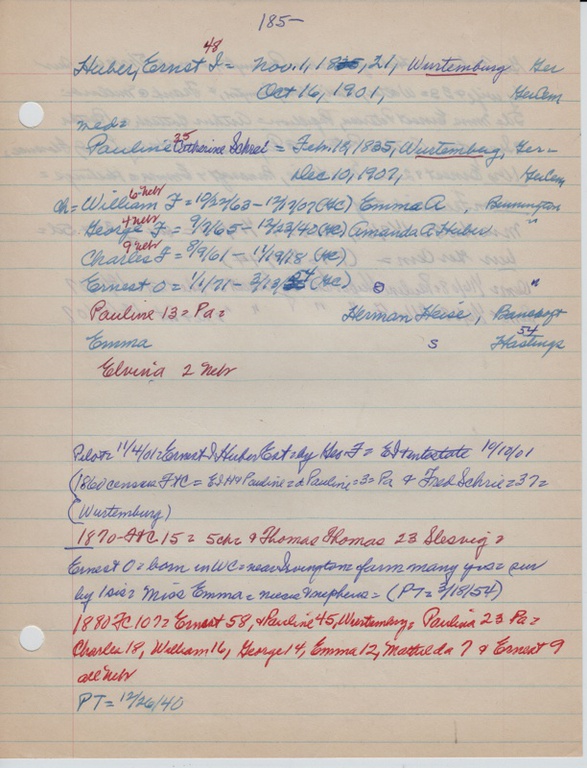 185-
48
Huber, Ernst I = Nov. 1, 1821, Wurtemburg Ger
Oct 16, 1901, GerCem
med=
35
Pauline Catherine = Feb. 19, 1835, Wurtemberg, Ger=
Dec 10, 1902, GerCem
6 nebr
ch= William F = 10/22/63 - 12/12/07 (HC) Emma A , Bennington
4 nebr
George F = 9/2/65 - 12/23/40 (HC) Amanda A Huber "
9 nebr
Charles F = 8/9/61 - 11/19/18 (HC)
Ernest O = 1/1/71 - 3/13/54 (HC) "
Pauline 13 = Pa = Herman Heise, Bancroft
54
Emma s Hastings
Elvina 2 Nebr
Pilot = 11/4/01 = Ernst I Huber Est = by Geo F = EI intestate 10/10/01
(1860 census FtC = ESH & Pauline = d Pauline = 3 = Pa & Fred Schrie = 37 =
(Wurtemburg)
1870 - FtC 15 = 5ch = & Thomas Thomas 23 Slesvig =
Ernest O = born in WC = near Irvington = farm many yrs = sur
by 1 sis = Miss Emma = nieces & nephews = (PT = 3/18/54)
1880 FC 107 = Ernest 58, & Pauline 45, Wurtemberg = Paulina 23 Pa =
Charles 18, William 16, George 14, Emma 12, Mathilda 7 & Ernest 9
all Nebr
PT = 12/26/40